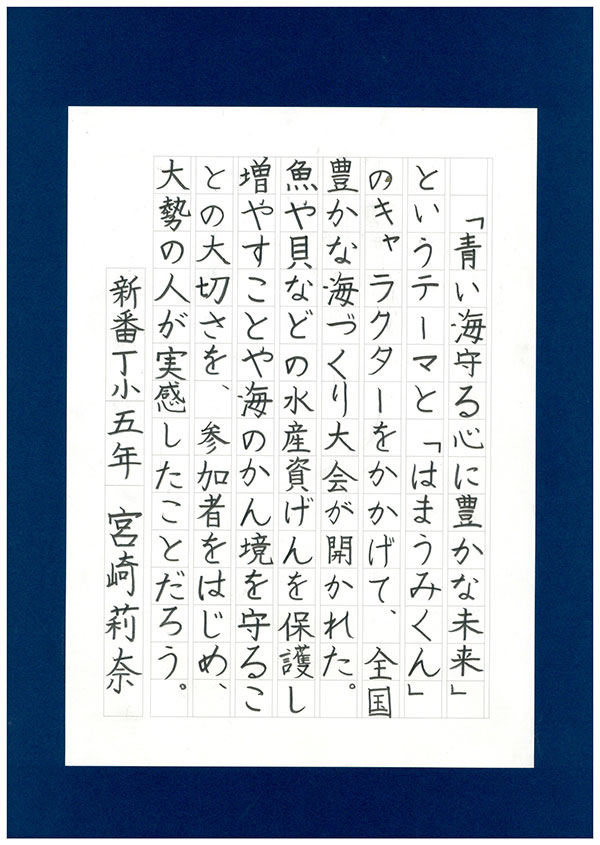 「青い海守る心に豊かな未来」
というテーマと「はまうみくん」
のキャラクターをかかげて、全国
豊かな海づくり大会が開かれた。
魚や貝などの水産資げんを保護し
増やすことや海のかん境を守るこ
との大切さを、参加者をはじめ、
大勢の人が実感したことだろう。
新番丁小五年 宮崎莉奈